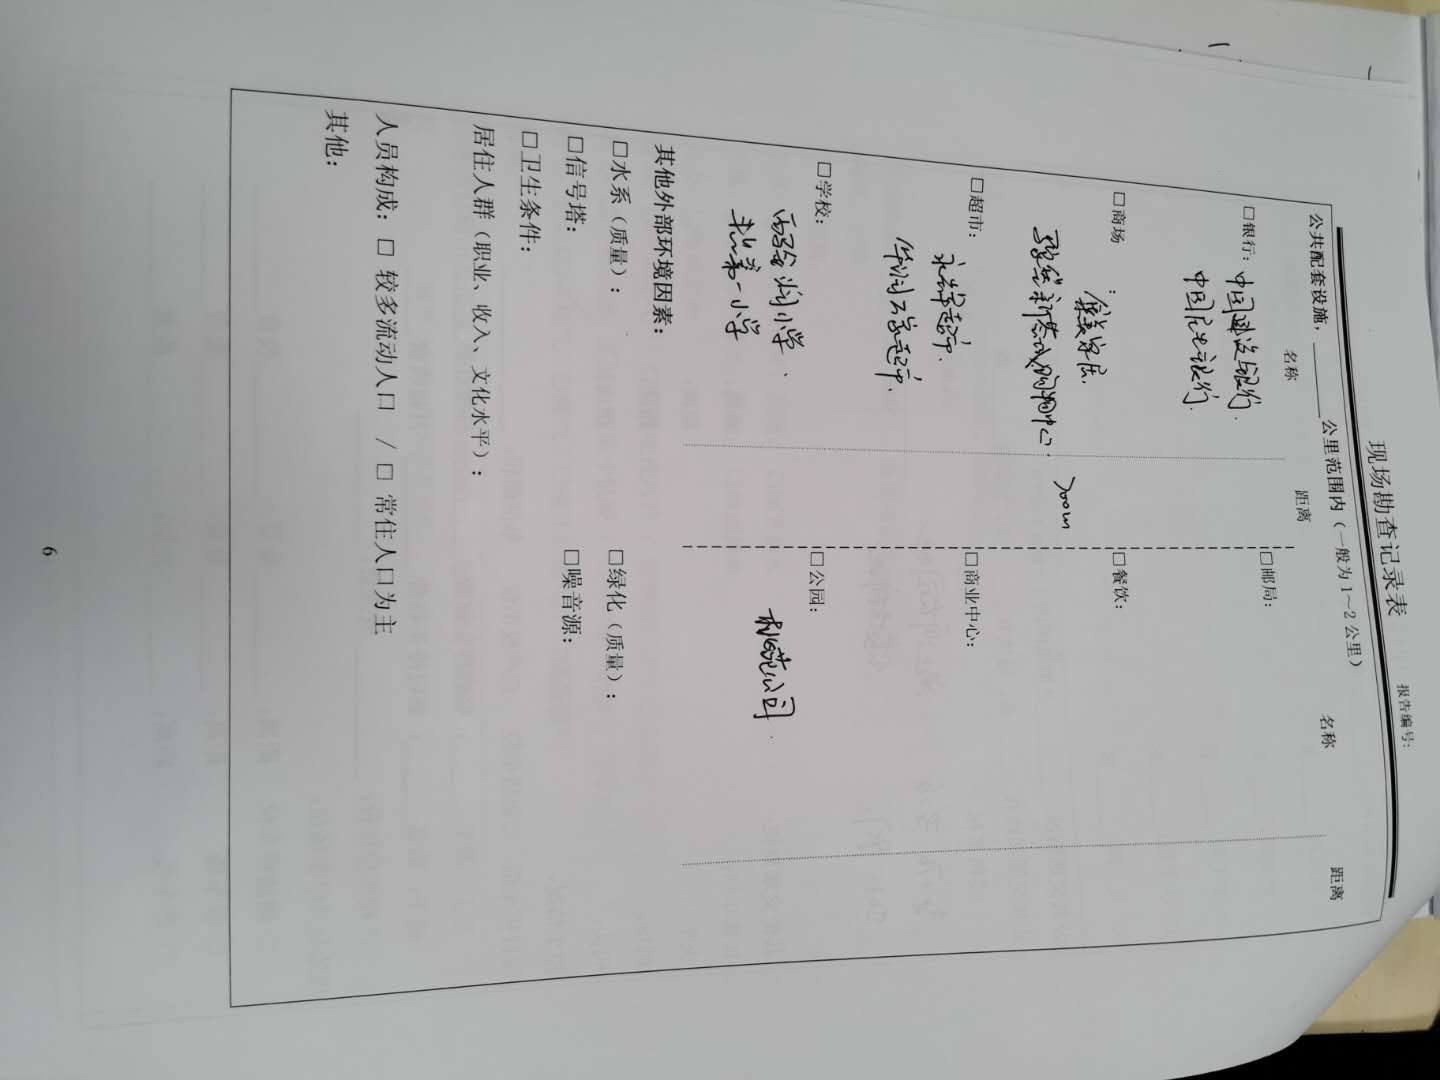 报告编号:
现场勘查记录表
公共配套设施，______公里范围内（一般为1~2公里）
名称 距离 名称 距离
□银行： 中国建设银行. □邮局:
中国民生银行.
□商场 : 家居. □餐饮:
新 购物中心. 700m
□超市: 永辉超市. □商业中心:
华润万家超市.
□学校: 小学、 □公园:
第一小学 公园.
其他外部环境因素:
□水系（质量）: □绿化（质量）:
□信号塔: □噪音源:
□卫生条件:
居住人群（职业、收入、文化水平）:
人员构成: □ 较多流动人口 / □ 常住人口为主
其他:
6